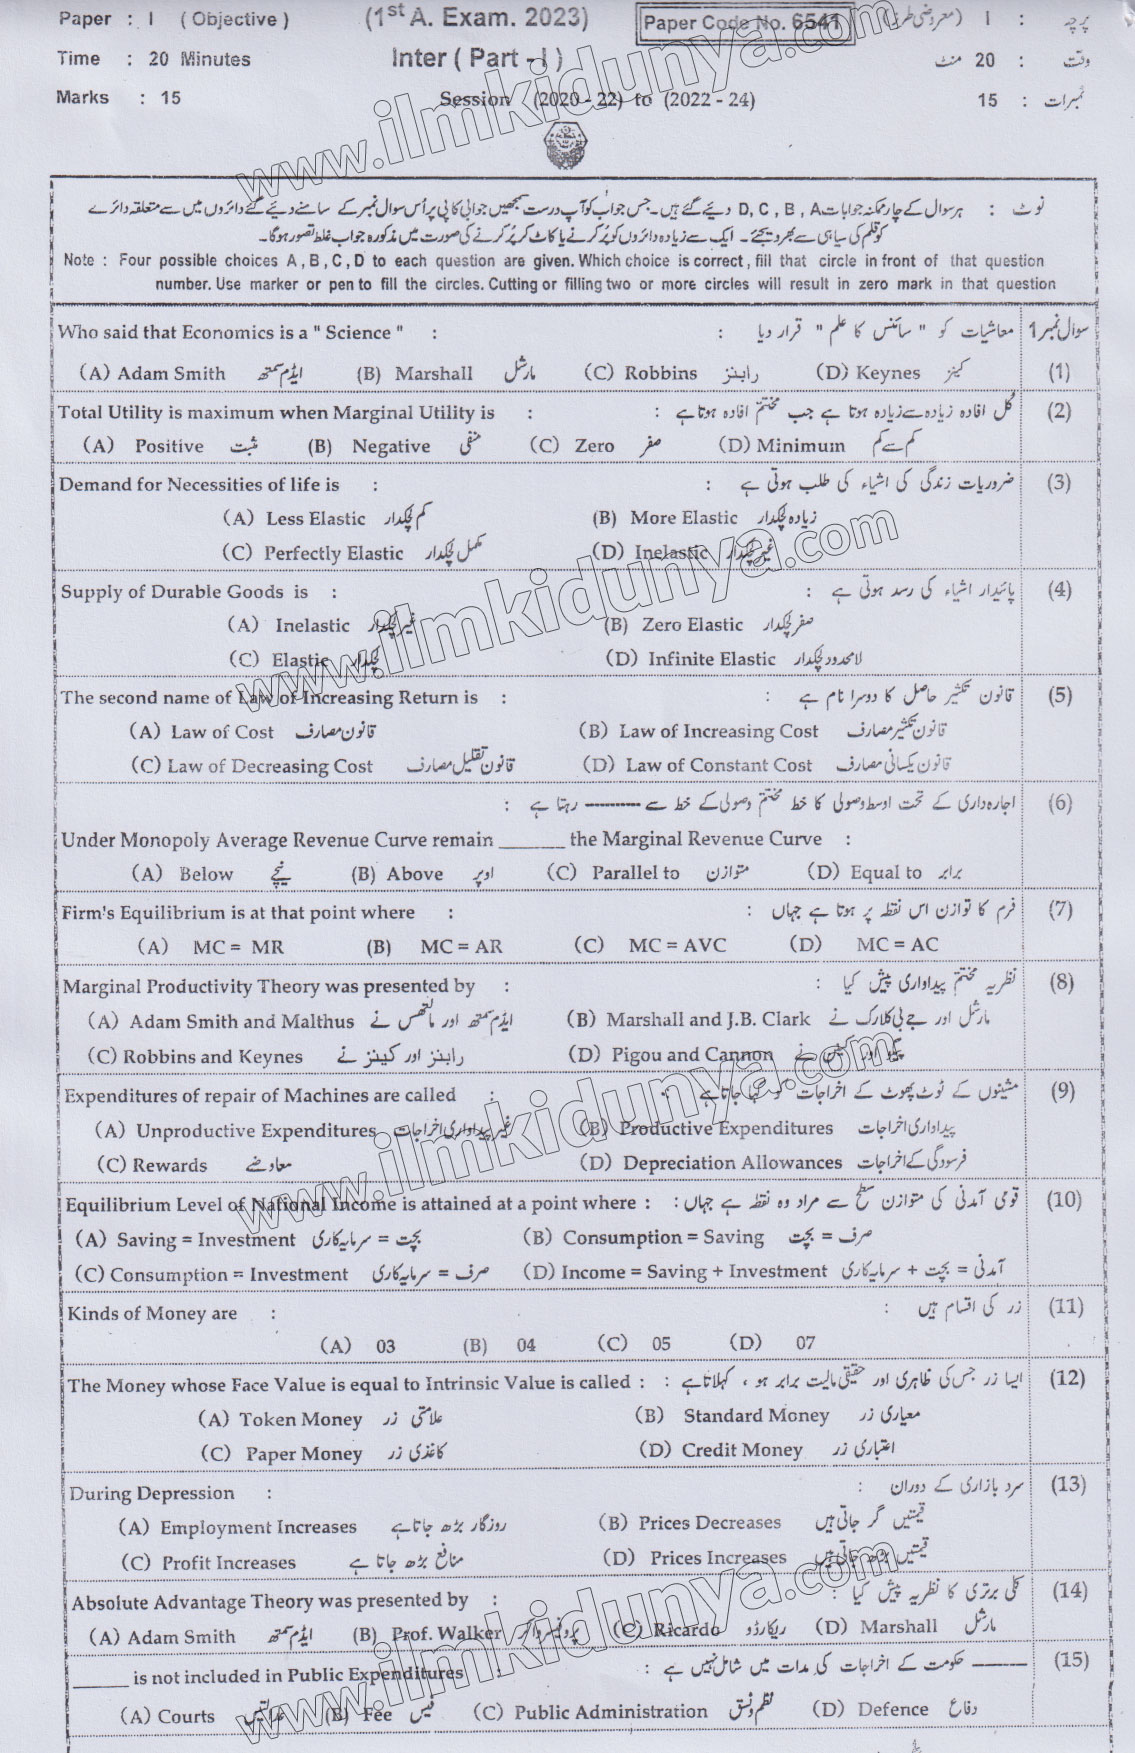 Paper : I ( Objective ) (1st A. Exam. 2023) Paper Code No. 6541 پرچہ : I (معروضی طرز)
Time : 20 Minutes Inter ( Part - I ) وقت : 20 منٹ
Marks : 15 Session (2020 - 22) to (2022 - 24) نمبرات : 15
نوٹ : ہر سوال کے چار ممکنہ جوابات D, C, B, A دیئے گئے ہیں۔ جس جواب کو آپ درست سمجھیں جوابی کاپی پر اُس سوال نمبر کے سامنے دیئے گئے دائروں میں سے متعلقہ دائرے
کو قلم کی سیاہی سے بھر دیجئے۔ ایک سے زیادہ دائروں کو پُر کرنے یا کاٹ کر پُر کرنے کی صورت میں مذکورہ جواب غلط تصور ہوگا۔
Note : Four possible choices A , B , C , D to each question are given. Which choice is correct , fill that circle in front of that question
number. Use marker or pen to fill the circles. Cutting or filling two or more circles will result in zero mark in that question
Who said that Economics is a " Science " : معاشیات کو " سائنس کا علم " قرار دیا : سوال نمبر 1
(A) Adam Smith ایڈم سمتھ (B) Marshall مارشل (C) Robbins رابنز (D) Keynes کینز (1)
Total Utility is maximum when Marginal Utility is : کُل افادہ زیادہ سے زیادہ ہوتا ہے جب مختتم افادہ ہوتا ہے : (2)
(A) Positive مثبت (B) Negative منفی (C) Zero صفر (D) Minimum کم سے کم
Demand for Necessities of life is : ضروریات زندگی کی اشیاء کی طلب ہوتی ہے : (3)
(A) Less Elastic کم لچکدار (B) More Elastic زیادہ لچکدار
(C) Perfectly Elastic مکمل لچکدار (D) Inelastic غیر لچکدار
Supply of Durable Goods is : پائیدار اشیاء کی رسد ہوتی ہے : (4)
(A) Inelastic غیر لچکدار (B) Zero Elastic صفر لچکدار
(C) Elastic لچکدار (D) Infinite Elastic لامحدود لچکدار
The second name of Law of Increasing Return is : قانون تکثیر حاصل کا دوسرا نام ہے : (5)
(A) Law of Cost قانون مصارف (B) Law of Increasing Cost قانون تکثیر مصارف
(C) Law of Decreasing Cost قانون تقلیل مصارف (D) Law of Constant Cost قانون یکسانی مصارف
اجارہ داری کے تحت اوسط وصولی کا خط مختتم وصولی کے خط سے --------- رہتا ہے : (6)
Under Monopoly Average Revenue Curve remain ______ the Marginal Revenue Curve :
(A) Below نیچے (B) Above اوپر (C) Parallel to متوازن (D) Equal to برابر
Firm's Equilibrium is at that point where : فرم کا توازن اس نقطہ پر ہوتا ہے جہاں : (7)
(A) MC = MR (B) MC = AR (C) MC = AVC (D) MC = AC
Marginal Productivity Theory was presented by : نظریہ مختتم پیداواری پیش کیا : (8)
(A) Adam Smith and Malthus ایڈم سمتھ اور مالتھس نے (B) Marshall and J.B. Clark مارشل اور جے بی کلارک نے
(C) Robbins and Keynes رابنز اور کینز نے (D) Pigou and Cannon پیگو اور کینن نے
Expenditures of repair of Machines are called : مشینوں کے ٹوٹ پھوٹ کے اخراجات کو کہا جاتا ہے : (9)
(A) Unproductive Expenditures غیر پیداواری اخراجات (B) Productive Expenditures پیداواری اخراجات
(C) Rewards معاوضے (D) Depreciation Allowances فرسودگی کے اخراجات
Equilibrium Level of National Income is attained at a point where : قومی آمدنی کی متوازن سطح سے مراد وہ نقطہ ہے جہاں : (10)
(A) Saving = Investment بچت = سرمایہ کاری (B) Consumption = Saving صرف = بچت
(C) Consumption = Investment صرف = سرمایہ کاری (D) Income = Saving + Investment آمدنی = بچت + سرمایہ کاری
Kinds of Money are : زر کی اقسام ہیں : (11)
(A) 03 (B) 04 (C) 05 (D) 07
The Money whose Face Value is equal to Intrinsic Value is called : ایسا زر جس کی ظاہری اور حقیقی مالیت برابر ہو ، کہلاتا ہے : (12)
(A) Token Money علامتی زر (B) Standard Money معیاری زر
(C) Paper Money کاغذی زر (D) Credit Money اعتباری زر
During Depression : سرد بازاری کے دوران : (13)
(A) Employment Increases روزگار بڑھ جاتا ہے (B) Prices Decreases قیمتیں گر جاتی ہیں
(C) Profit Increases منافع بڑھ جاتا ہے (D) Prices Increases قیمتیں بڑھ جاتی ہیں
Absolute Advantage Theory was presented by : کلی برتری کا نظریہ پیش کیا : (14)
(A) Adam Smith ایڈم سمتھ (B) Prof. Walker پروفیسر واکر (C) Ricardo ریکارڈو (D) Marshall مارشل
______ is not included in Public Expenditures : ------ حکومت کے اخراجات کی مدات میں شامل نہیں ہے : (15)
(A) Courts عدالتیں (B) Fee فیس (C) Public Administration نظم و نسق (D) Defence دفاع
www.ilmkidunya.com
www.ilmkidunya.com
www.ilmkidunya.com
www.ilmkidunya.com